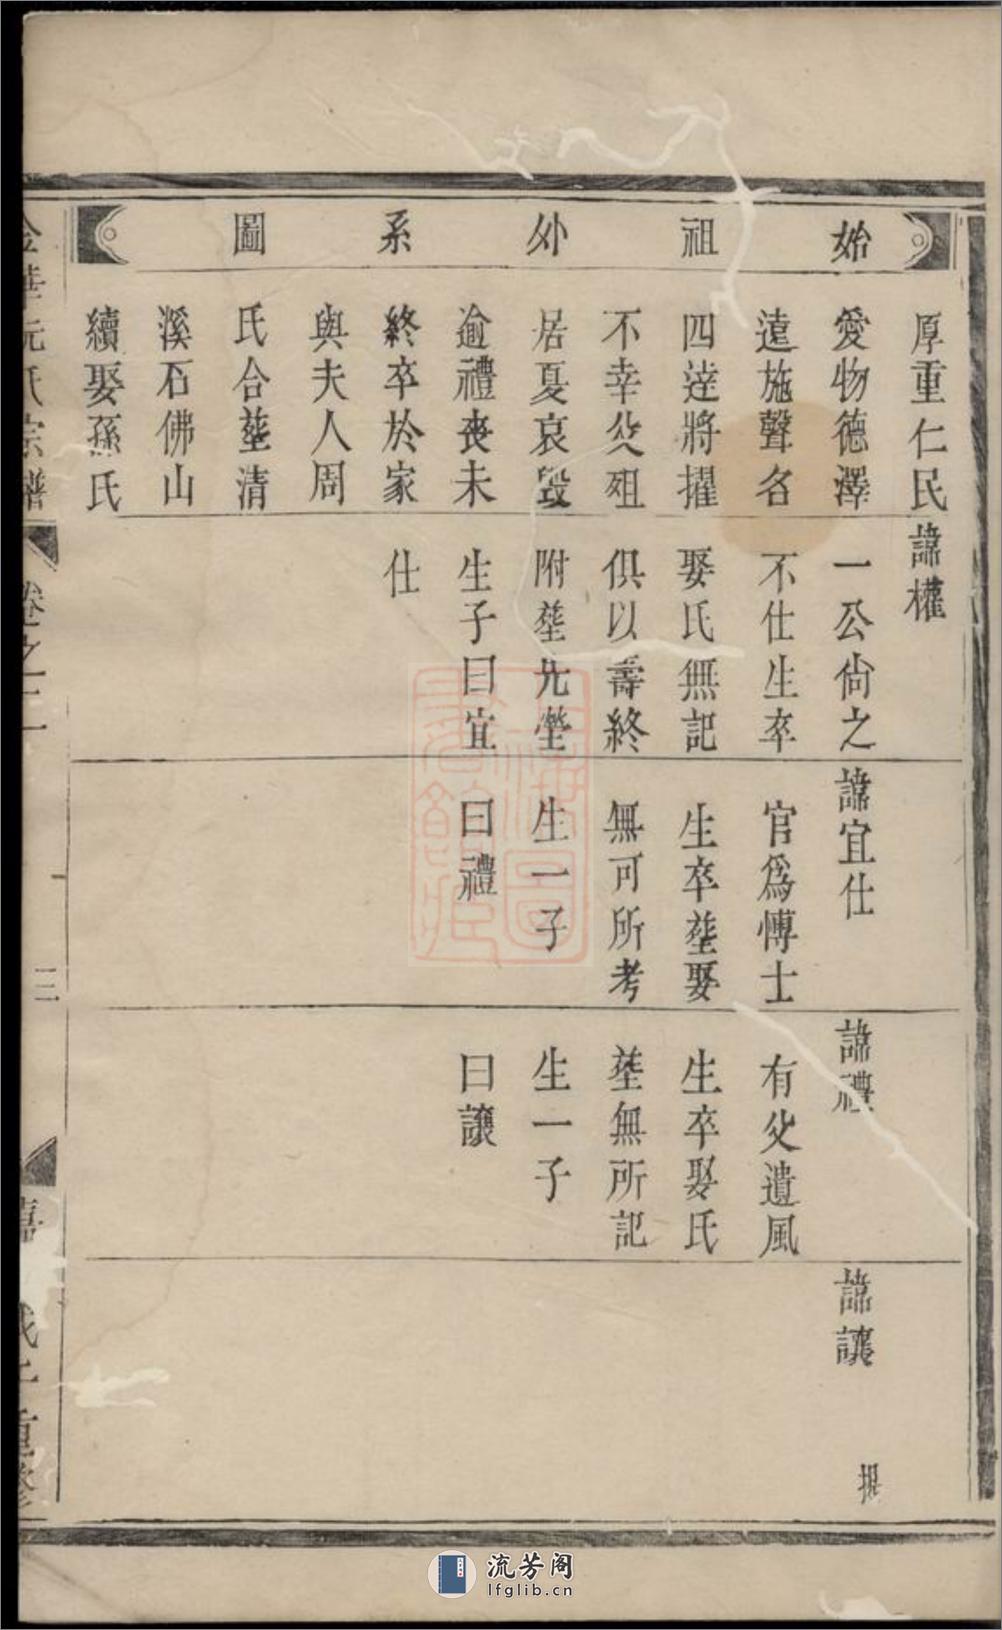 始祖外系圖
厚重仁民
愛物德澤
遠施聲名
四達將擢
不幸父殂
居憂哀毀
逾禮喪未
終卒於家
與夫人周
氏合塟清
溪石佛山
續娶孫氏
諱權
一公尙之
不仕生卒
娶氏無記
俱以壽終
附塟先塋
生子曰宜
仕
諱宜仕
官爲博士
生卒塟娶
無可所考
生一子
曰禮
諱禮
有父遺風
生卒娶氏
塟無所記
生一子
曰讓
諱讓
金華阮氏宗譜
卷之二
三
重修
流芳阁
lfglib.cn